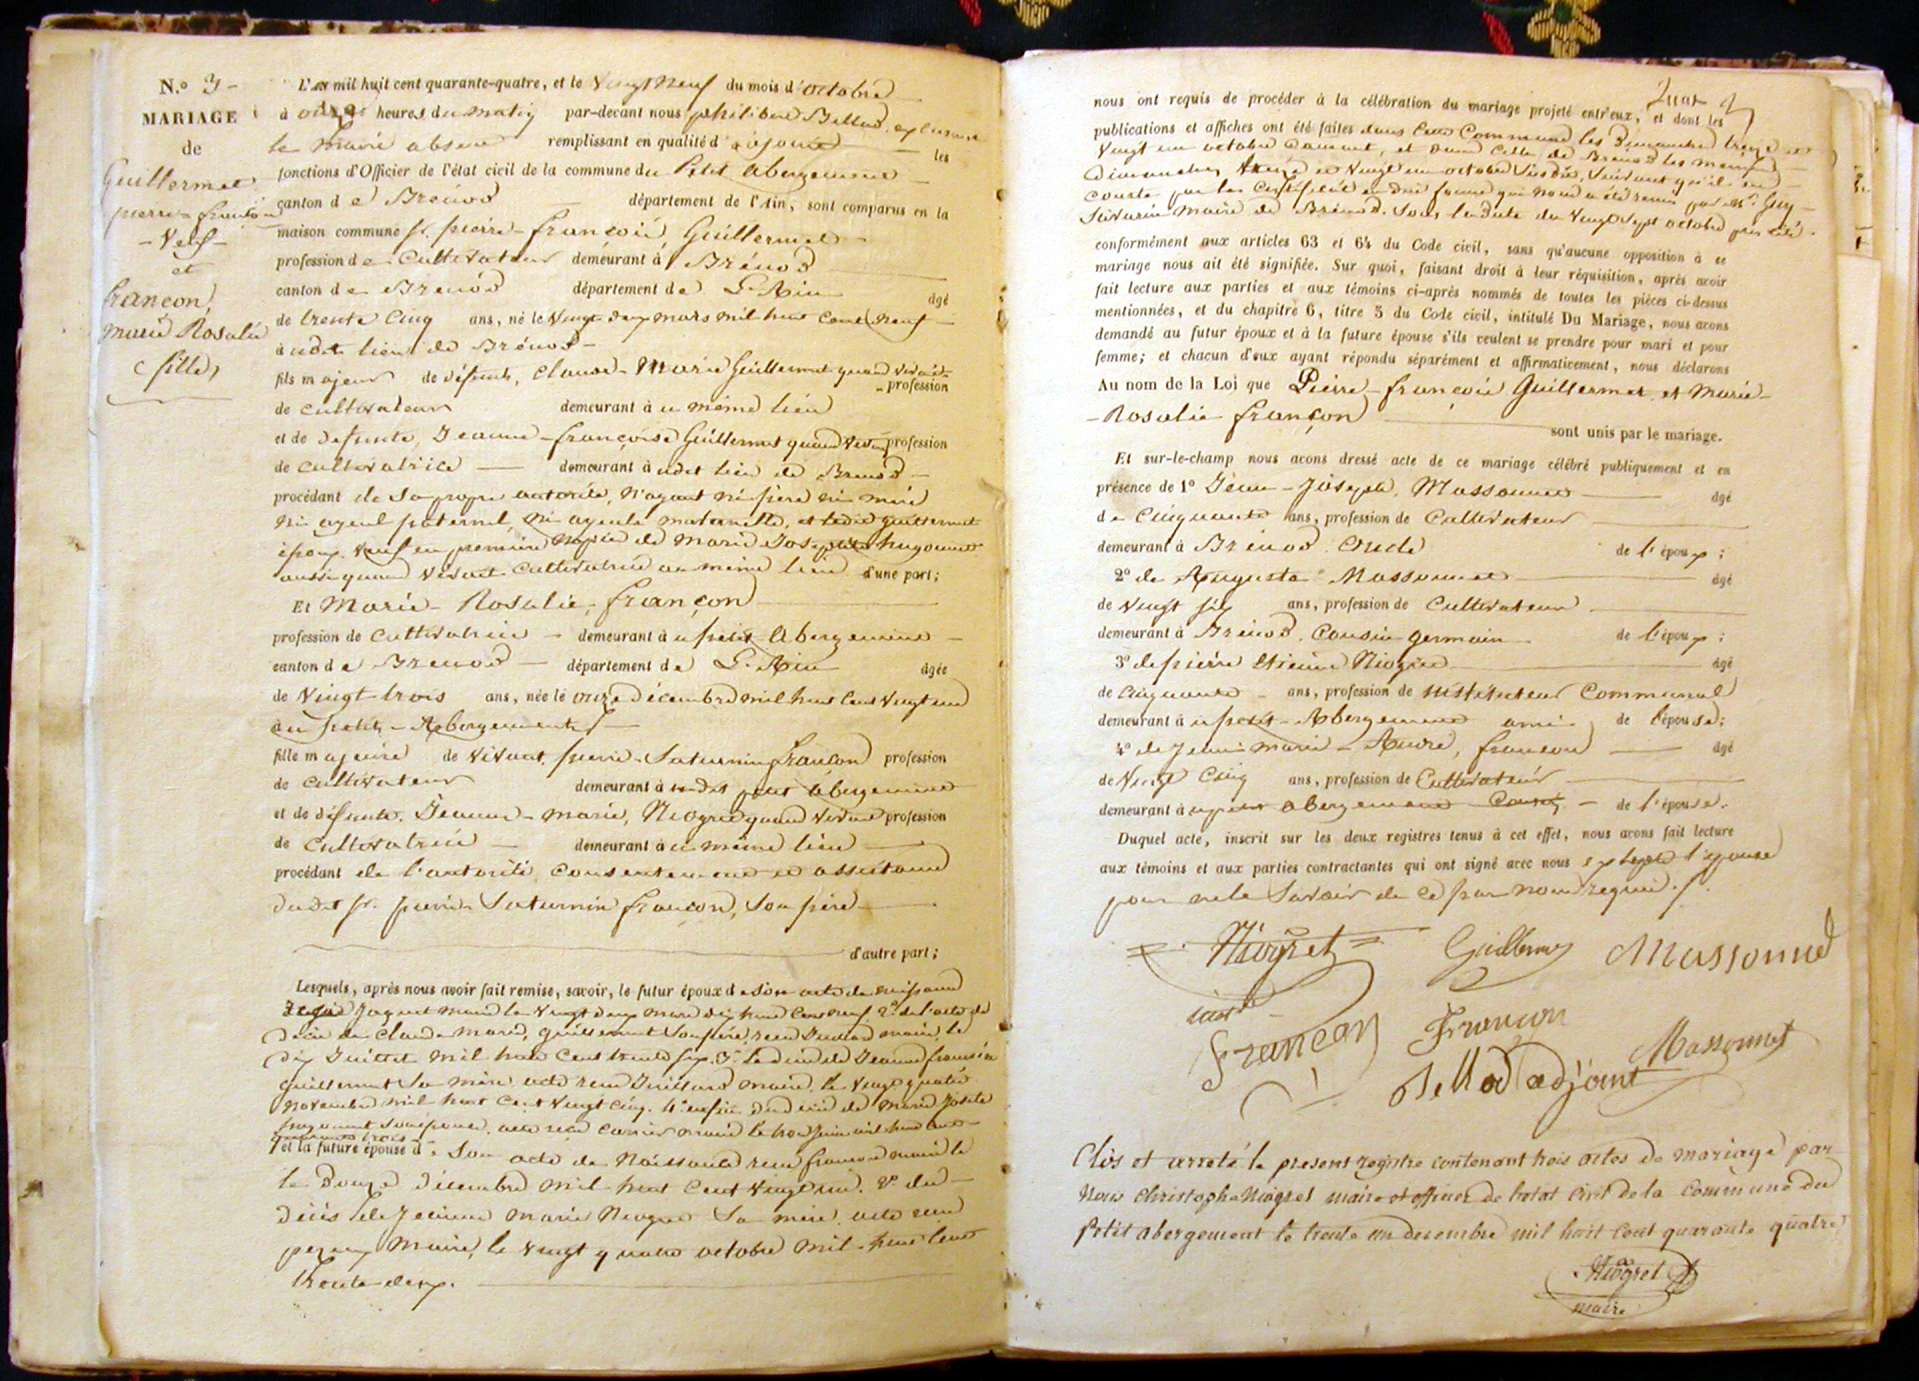 N.º 3
MARIAGE
de
Guillermet
pierre françois
- Veuf -
et
françon,
Marie Rosalie
fille,
L'an mil huit cent quarante-quatre, et le vingt neuf du mois d'octobre
à onze heures du matin par-devant nous philibert Bellod,
le maire absent remplissant en qualité d'adjoint les
fonctions d'Officier de l'état civil de la commune du Petit abergement
canton de Brénod département de l'Ain, sont comparus en la
maison commune sr. pierre-françois Guillermet
profession de Cultivateur demeurant à Brénod
canton de Brénod département de L'Ain âgé
de trente cinq ans, né le vingt deux mars mil huit cent neuf
audit lieu de Brénod -
fils majeur de défunt, claude-Marie Guillermet quand vivait profession
de cultivateur demeurant au même lieu
et de défunte, Jeanne-françoise Guillermet quand vivait profession
de cultivatrice demeurant audit lieu de Brénod
procédant de sa propre autorité, n'ayant ni père ni mère
ni ayeul paternel, ni ayeule maternelle, et ledit Guillermet
époux veuf en première noces de Marie Josephte hugonnet
aussi quand vivait cultivatrice au même lieu d'une part;
Et Marie-Rosalie, françon
profession de cultivatrice demeurant au petit Abergement
canton de Brénod département de L'Ain âgée
de vingt trois ans, née le onze décembre mil huit cent vingt un
au petit-Abergement
fille majeure de vivant, pierre-Saturnin françon profession
de cultivateur demeurant audit petit abergement
et de défunte, Jeanne-marie, Niogret quand vivait profession
de cultivatrice demeurant au même lieu
procédant de l'autorité, consentement et assistance
dudit sr. pierre Saturnin françon, son père
d'autre part;
Lesquels, après nous avoir fait remise, savoir, le futur époux de son acte de naissance
Jaquet maire le vingt deux mars dix huit cent neuf 2º de l'acte de
décès de claude marie, guillermet son père, reçu maire, le
dix Juillet mil huit cent trente six. 3º de Jeanne françoise
guillermet sa mère acte reçu maire, le vingt quatre
novembre mil huit cent vingt cinq. 4º enfin du décès de marie Josephte
hugonnet son épouse, acte reçu maire le Juin mil huit cent
quarante trois
et la future épouse de son acte de Naissance reçu françon maire le
le Douze décembre mil huit cent vingt un. 2º du
décès de Jeanne Marie Niogret sa mère, acte reçu
maire, le vingt quatre octobre mil huit cent
trente deux.
nous ont requis de procéder à la célébration du mariage projeté entr'eux, et dont les
publications et affiches ont été faites dans cette Commune les Dimanches treize et
vingt un octobre courant, et dans celle de Brénod les mêmes
dimanches treize et vingt un octobre susdit, suivant qu'il en
conste par le Certificat en due forme qui nous a été remis par Mr. Guy
maire de Brénod. Sous la date du vingt sept octobre
conformément aux articles 63 et 64 du Code civil, sans qu'aucune opposition à ce
mariage nous ait été signifiée. Sur quoi, faisant droit à leur réquisition, après avoir
fait lecture aux parties et aux témoins ci-après nommés de toutes les pièces ci-dessus
mentionnées, et du chapitre 6, titre 5 du Code civil, intitulé Du Mariage, nous avons
demandé au futur époux et à la future épouse s'ils veulent se prendre pour mari et pour
femme; et chacun d'eux ayant répondu séparément et affirmativement, nous déclarons
Au nom de la Loi que Pierre-françois Guillermet et Marie-
-Rosalie françon
sont unis par le mariage.
Et sur-le-champ nous avons dressé acte de ce mariage célébré publiquement et en
présence de 1º Jean-Joseph, Massonnet âgé
de Cinquante ans, profession de Cultivateur
demeurant à Brénod. Oncle de l'époux;
2º de Auguste Massonnet âgé
de vingt six ans, profession de Cultivateur
demeurant à Brénod. Cousin germain de l'époux;
3º de pierre Etienne Niogret âgé
de Cinquante ans, profession de Instituteur Communal
demeurant au petit-Abergement ami de l'épouse;
4º de Jean marie-André, françon âgé
de Vingt Cinq ans, profession de Cultivateur
demeurant au petit abergement Cousin de l'épouse.
Duquel acte, inscrit sur les deux registres tenus à cet effet, nous avons fait lecture
aux témoins et aux parties contractantes qui ont signé avec nous excepté l'épouse
pour ne le savoir de ce par nous requis.
Niogret Guillermet Massonnet
francon Francon Massonnet
Bellod adjoint
Clos et arreté le present registre contenant trois actes de mariage par
Nous Christophe Niogret maire et officier de l'etat civil de la commune du
petit abergement le trente un decembre mil huit cent quarante quatre
Niogret
maire